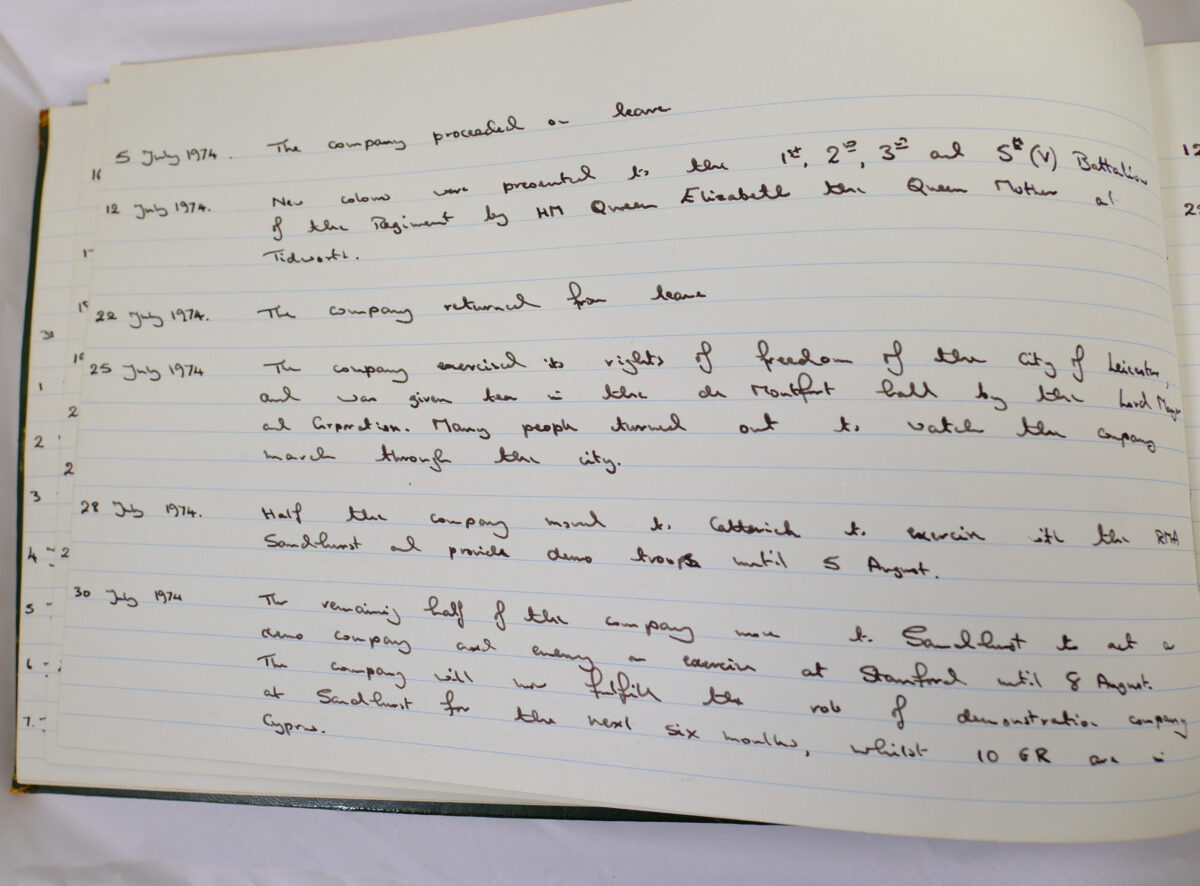 5 July 1974. The company proceeded on leave
12 July 1974. New colours were presented to the 1st, 2nd, 3rd and 5th (V) Battalion
of the Regiment by HM Queen Elizabeth the Queen Mother at
Tidworth.
22 July 1974. The company returned from leave
25 July 1974 The company exercised its rights of freedom of the City of Leicester,
and was given tea in the de Montfort hall by the Lord Mayor
and Corporation. Many people turned out to watch the company
march through the city.
28 July 1974. Half the company moved to Catterick to exercise with the RMA
Sandhurst and provide demo troops until 5 August.
30 July 1974 The remaining half of the company move to Sandhurst to act a
demo company and enemy on exercise at Stanford until 8 August.
The company will now fulfill the role of demonstration company
at Sandhurst for the next six months, whilst 10 GR are in
Cyprus.